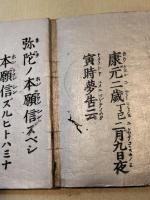 康元二歳丁巳二月九日夜
寅時夢告云
弥陀ノ本願信スベシ
本願信ズルヒトハミナ